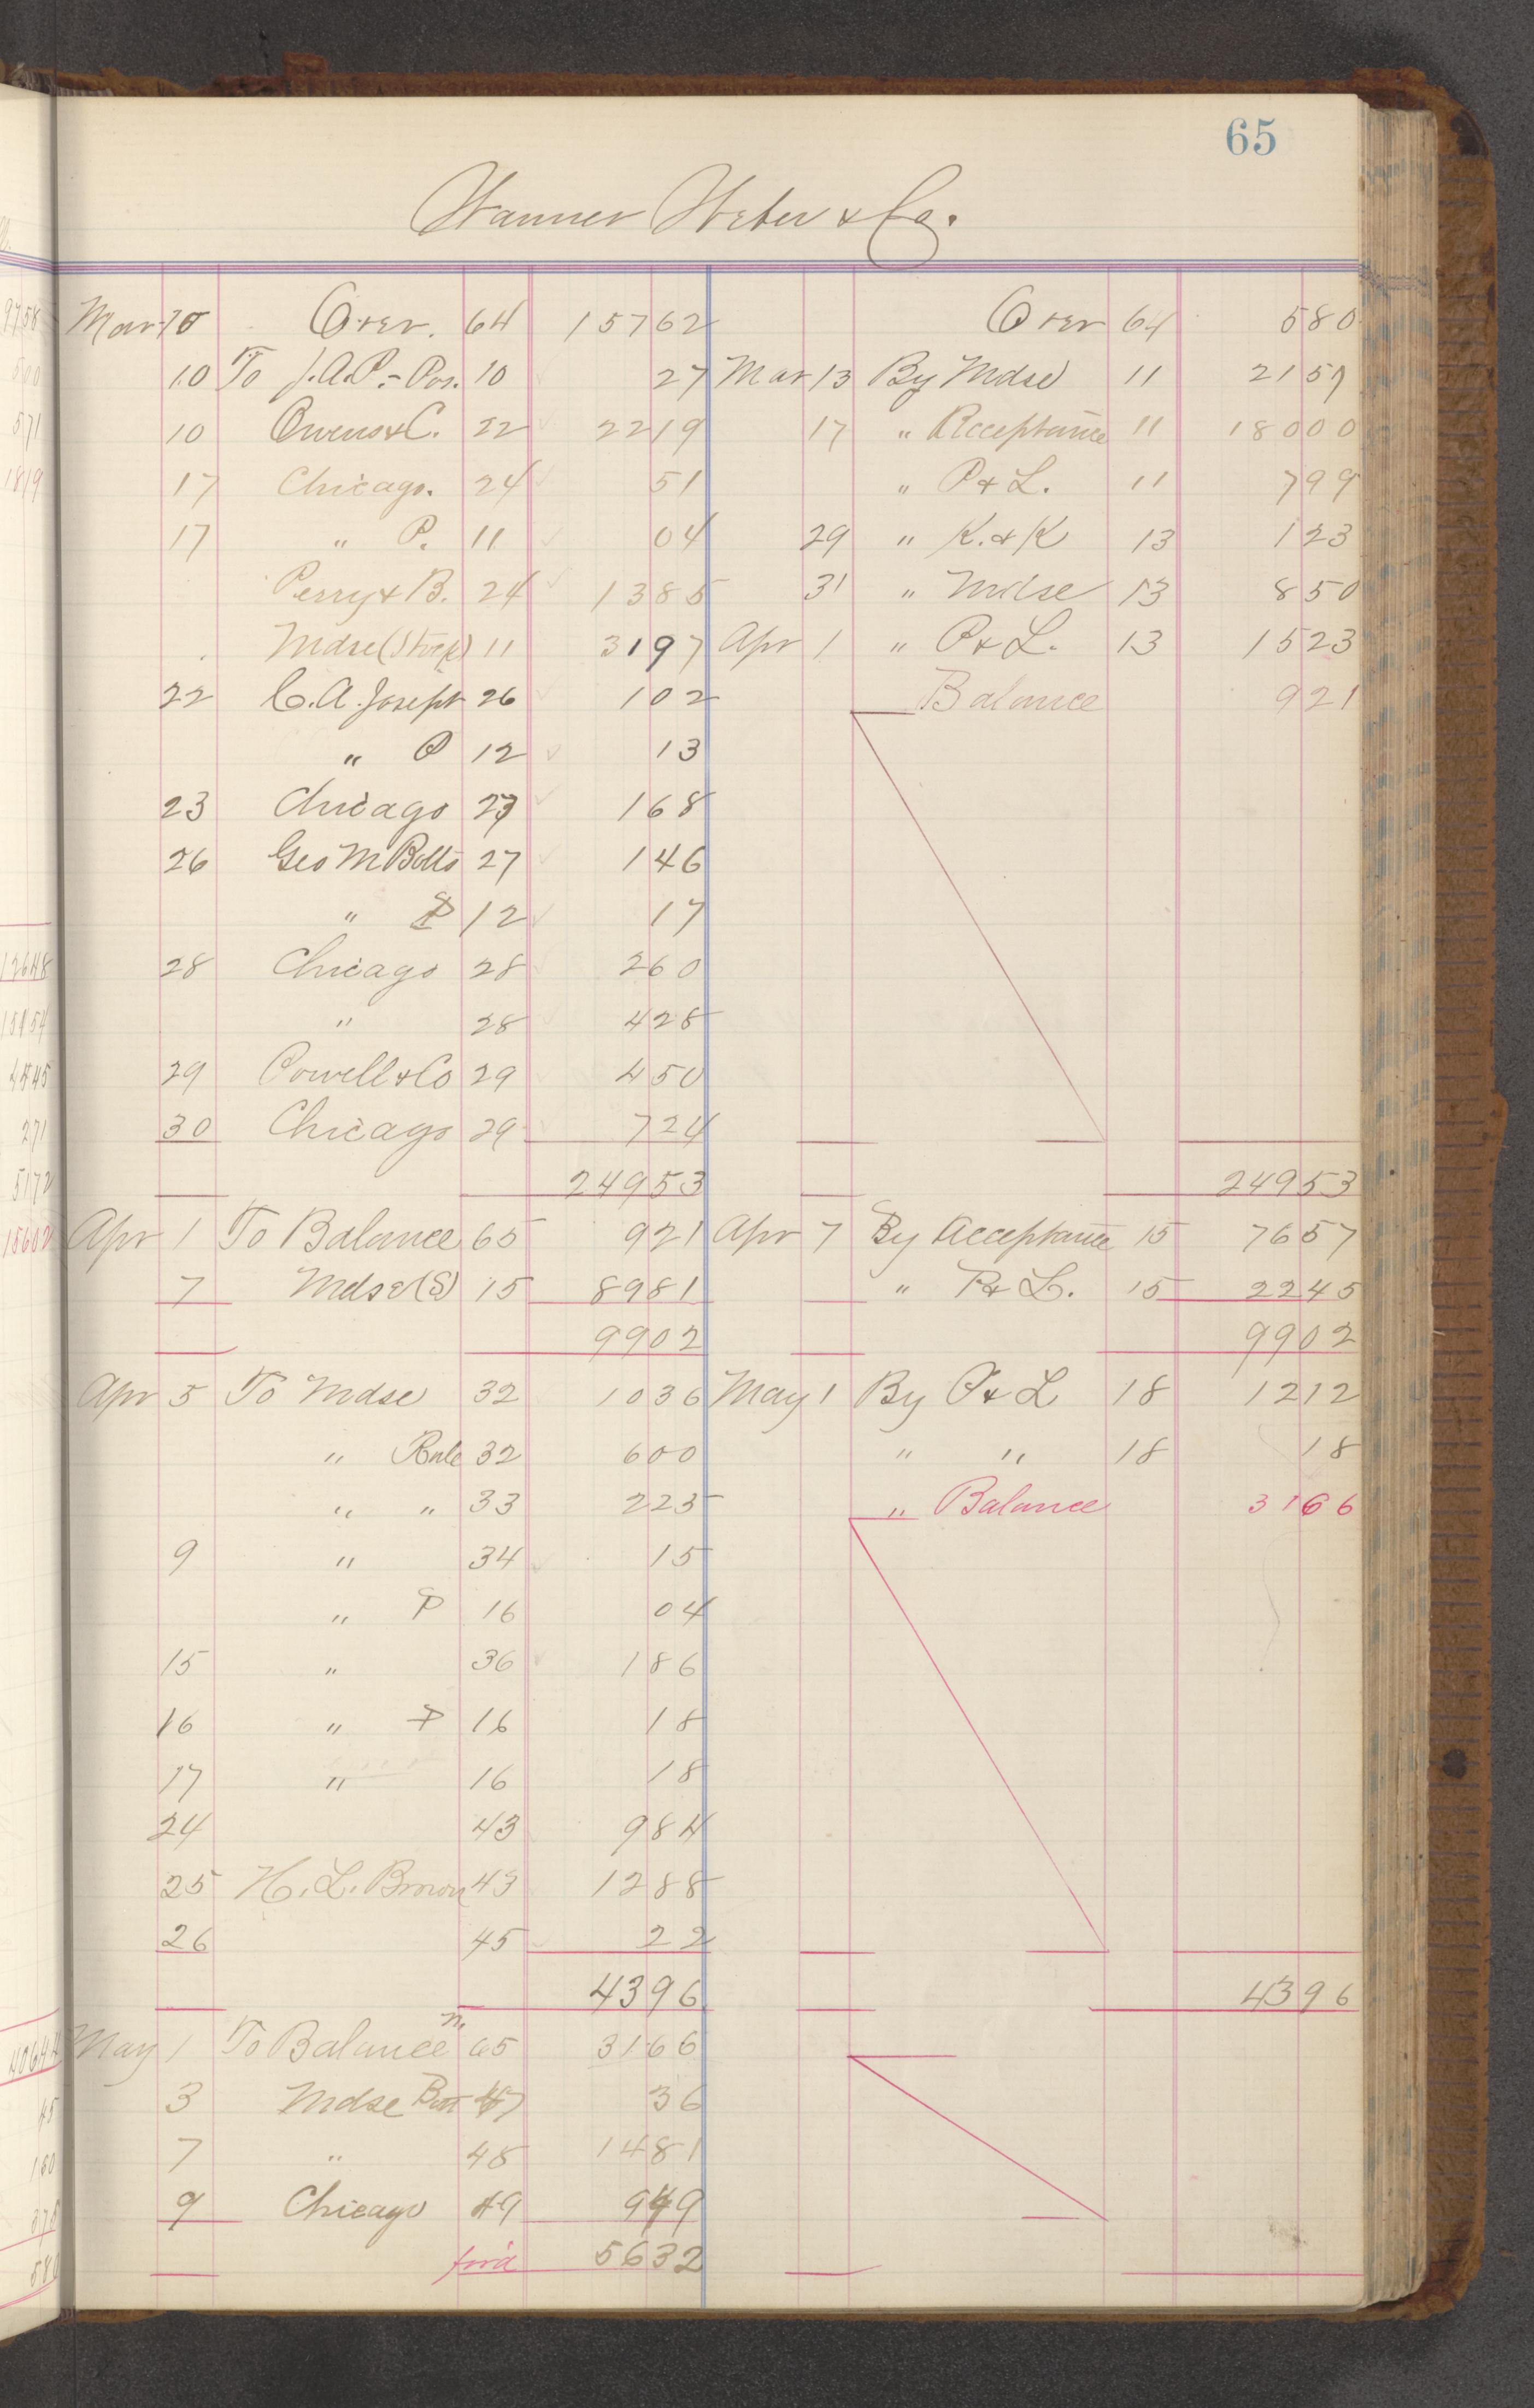 65
Wanner Weber & Co.
Mar 10 Over. 64 157 62 Over 64 5 80
10 To J.A.P.- Pos. 10 27 Mar 13 By Mdse 11 21 57
10 Owens & C. 22 22 19 17 " Acceptance 11 180 00
17 Chicago. 24 51 " P & L. 11 7 99
17 " P. 11 04 29 " K. & K 13 1 23
Perry & B. 24 13 85 31 " Mdse 13 8 50
Mdse (Stock) 11 31 97 Apr 1 " P & L. 13 15 23
22 C. A. Joseph 26 1 02 Balance 9 21
" P 12 13
23 Chicago 27 1 68
26 Geo M Botts 27 1 46
" P 12 17
28 Chicago 28 2 60
" 28 4 28
29 Powell & Co 29 4 50
30 Chicago 29 7 24
249 53 249 53
Apr 1 To Balance 65 9 21 Apr 7 By Acceptance 15 76 57
7 Mdse (S) 15 89 81 " P & L. 15 22 45
99 02 99 02
Apr 5 To Mdse 32 10 36 May 1 By P & L 18 12 12
" 32 6 00 " " 18 18
" " 33 2 23 " Balance 31 66
9 " 34 15
" P 16 04
15 " 36 1 86
16 " P 16 18
17 " 16 18
24 43 9 84
25 H. L. Brown 43 12 88
26 45 22
43 96 43 96
May 1 To Balance 65 31 66
3 Mdse 47 36
7 " 48 14 81
9 Chicago 49 9 49
for'd 56 32